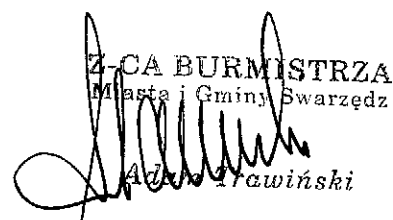 Z-CA BURMISTRZA
Miasta i Gminy Swarzędz
Adam Trawiński